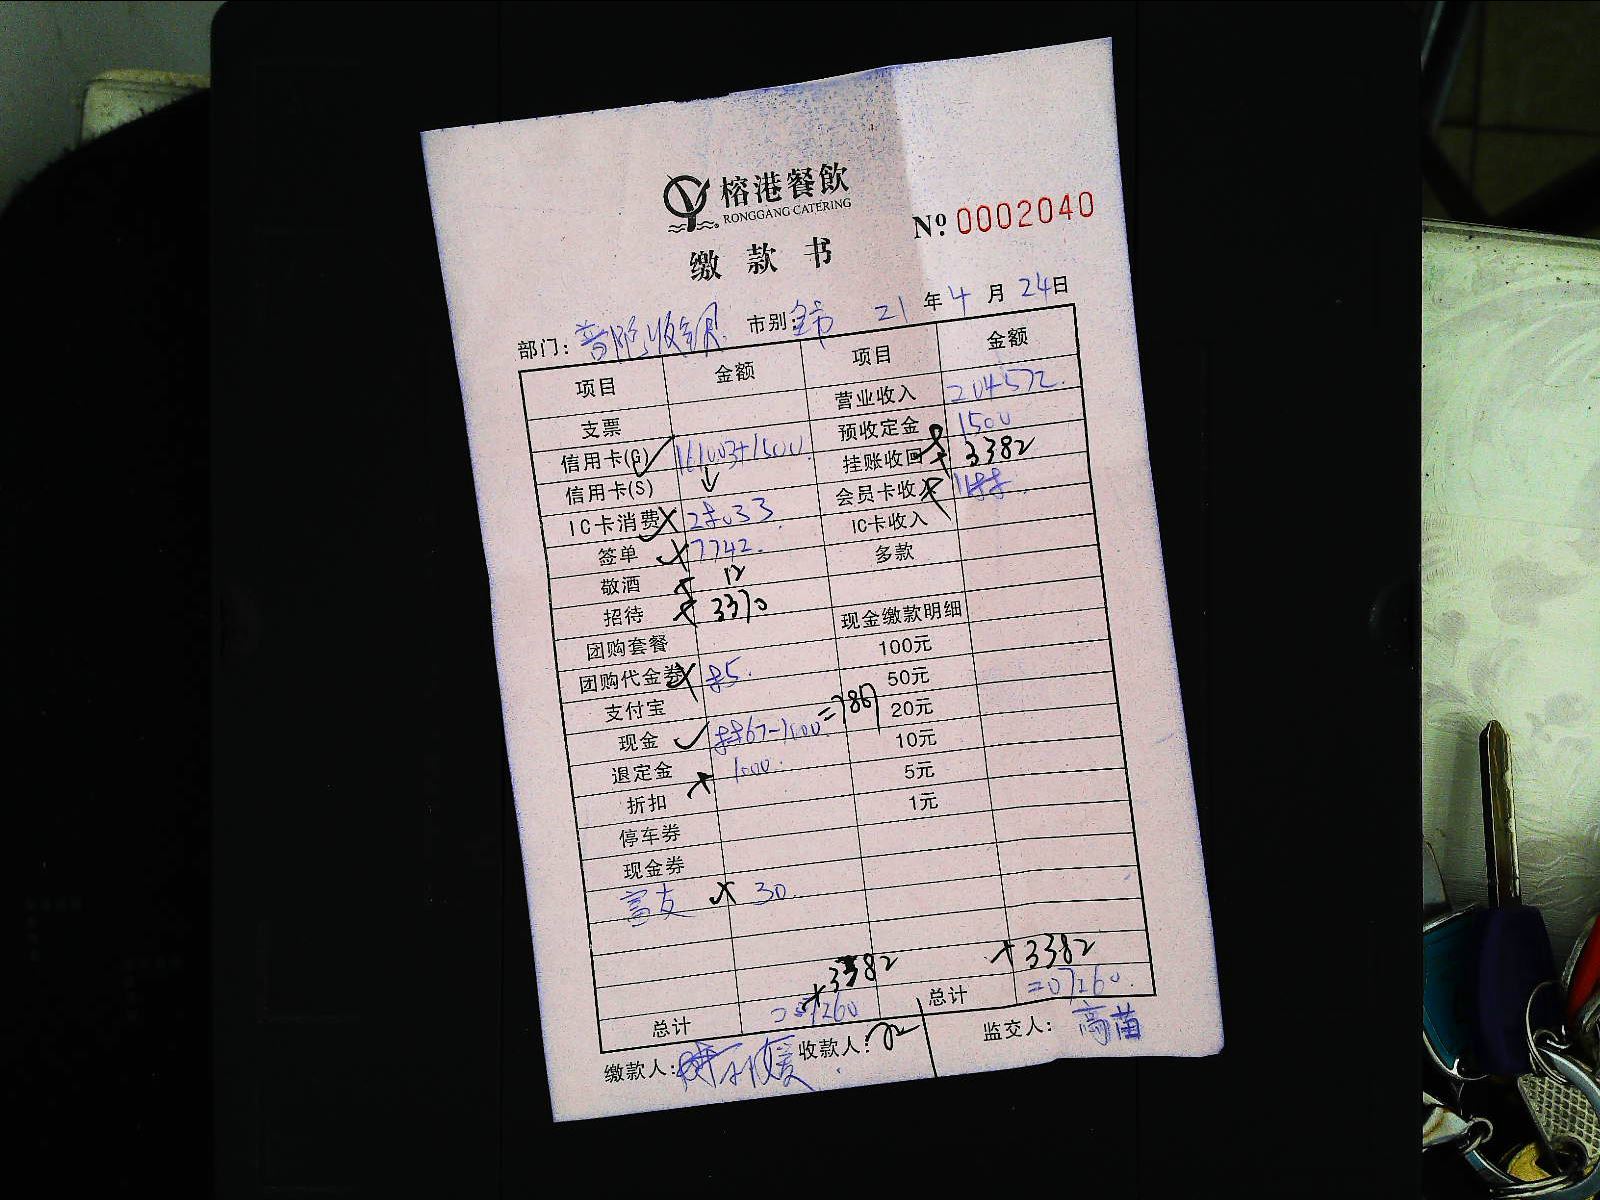 榕港餐飲
RONGGANG CATERING
№ 0002040
缴款书
部门: 普陀收银 市别: 全市 21 年 4 月 24 日
项目 金额 项目 金额
支票 营业收入 204572.
信用卡(G) 161003+1500. 预收定金 1500
信用卡(S) 挂账收回 3382
IC卡消费 会员卡收
签单 7742. IC卡收入
敬酒 12 多款
招待 3370
团购套餐 现金缴款明细
团购代金券 85. 100元
支付宝 50元
现金 8867-1000 =7867 20元
退定金 1000. 10元
折扣 5元
停车券 1元
现金券
富友 30.
+3382 +3382
总计 207260 总计 207260.
缴款人: 收款人: 监交人: 高苗